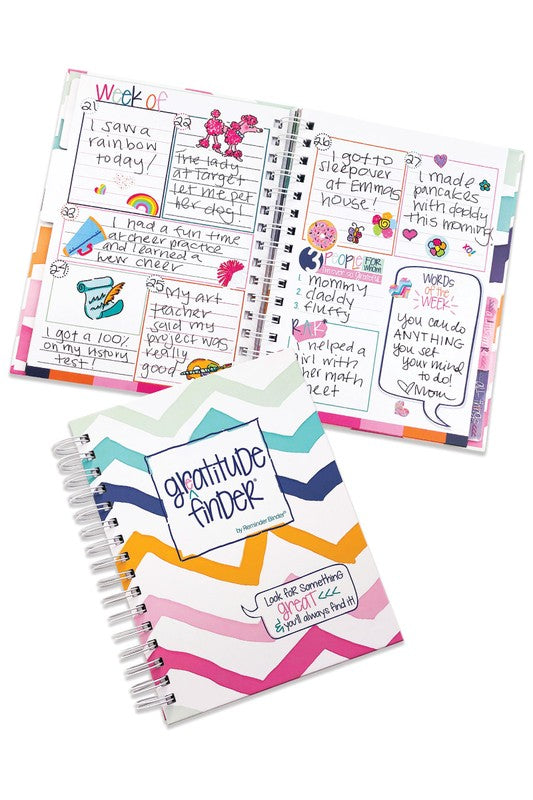 Week of
21
I saw a
rainbow
today!
22
the lady
at target
let me pet
her dog!
23
I had a fun time
at cheer practice
and learned a
new cheer
24
I got a 100%
on my history
test!
25
My art
teacher
said my
project was
really
good
26
I got to
sleepover
at Emmas
house!
27
I made
pancakes
with daddy
this morning
3 PEOPLE FOR
whom
I'm ever so grateful
1. mommy
2. daddy
3. fluffy
R.A.K.
I helped a
girl with
her math
sheet
WORDS
of the
WEEK
you can do
ANYTHING
you set
your mind
to do!
♡ Mom
greatitude
finder®
by Reminder Binder®
Look for something
great <<<
& you'll always find it!